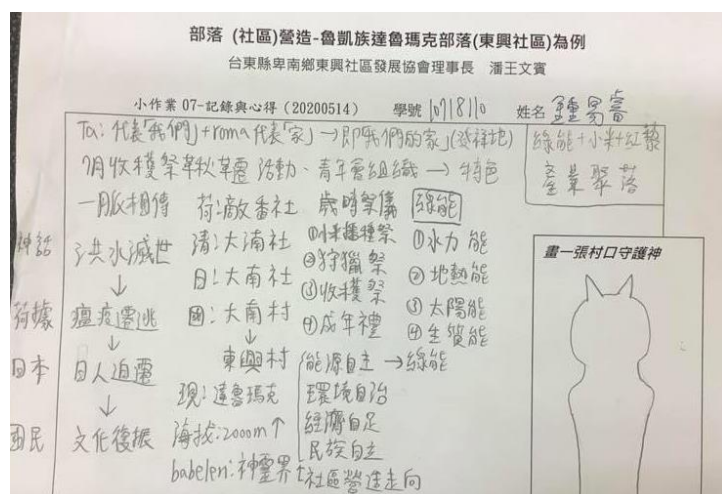 部落 (社區)營造-魯凱族達魯瑪克部落(東興社區)為例
台東縣卑南鄉東興社區發展協會理事長 潘王文賓
小作業 07-記錄與心得 (20200514) 學號 10718110 姓名
Ta: 代表「我們」+roma 代表「家」→即我們的家」(發祥地)
7月收穫祭 鞦韆 活動、青年會組織 → 特色
綠能+小米+紅藜
產業聚落
一脈相傳
神話 洪水滅世
↓
荷據 瘟疫遷逃
↓
日本 日人迫遷
↓
國民 文化復振
荷:敵番社
清:大湳社
日:大南社
國:大南村
↓
東興村
現:達魯瑪克
海拔:2000m↑
babelen:神靈界
歲時祭儀
①小米播種祭
②狩獵祭
③收穫祭
④成年禮
綠能
①水力能
②地熱能
③太陽能
④生質能
能源自主 →綠能
環境自治
經濟自足
民族自主
社區營造走向
畫一張村口守護神